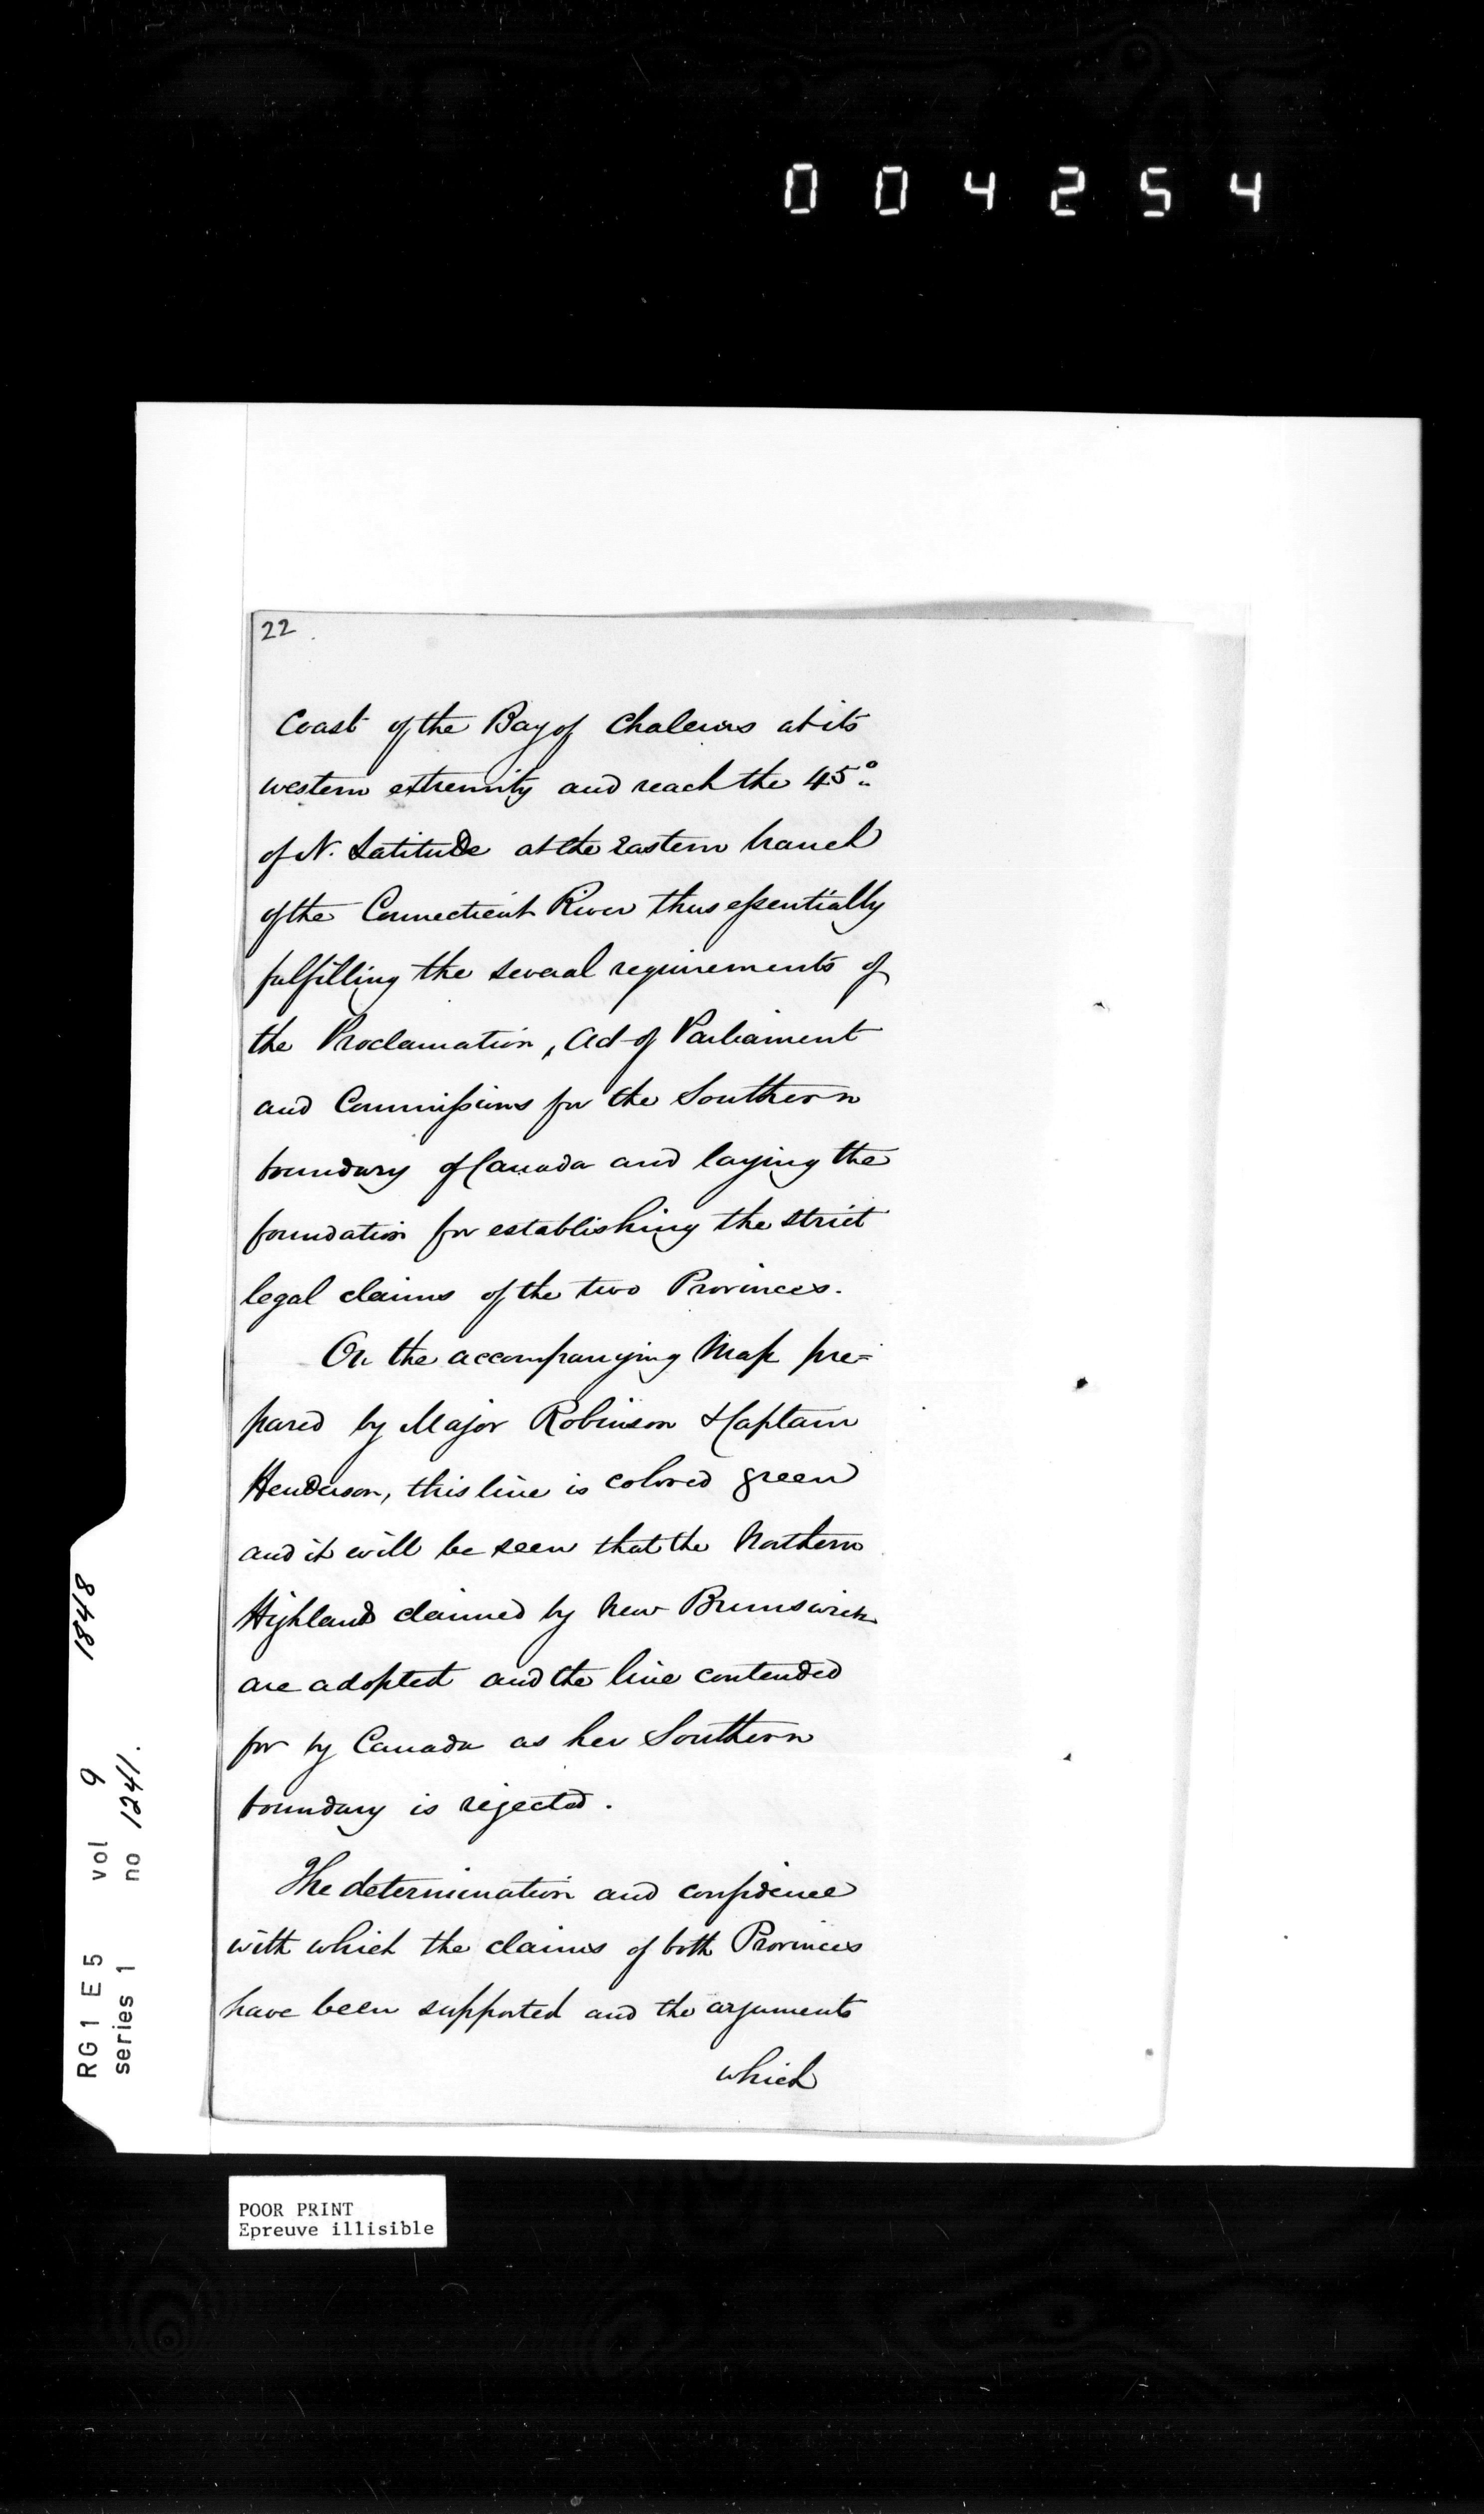 004254
22
Coast of the Bay of Chaleurs at its
western extremity and reach the 45°
of N. Latitude at the Eastern branch
of the Connecticut River thus essentially
fulfilling the several requirements of
the Proclamation, Act of Parliament
and Commissions for the Southern
boundary of Canada and laying the
foundation for establishing the strict
legal claims of the two Provinces.
On the accompanying Map pre=
pared by Major Robinson & Captain
Henderson, this line is colored green
and it will be seen that the Northern
Highlands claimed by New Brunswick
are adopted and the line contended
for by Canada as her Southern
boundary is rejected.
The determination and confidence
with which the claims of both Provinces
have been supported and the arguments
which
RG 1 E 5 vol 9 1848
series 1 no 1241.
POOR PRINT
Epreuve illisible